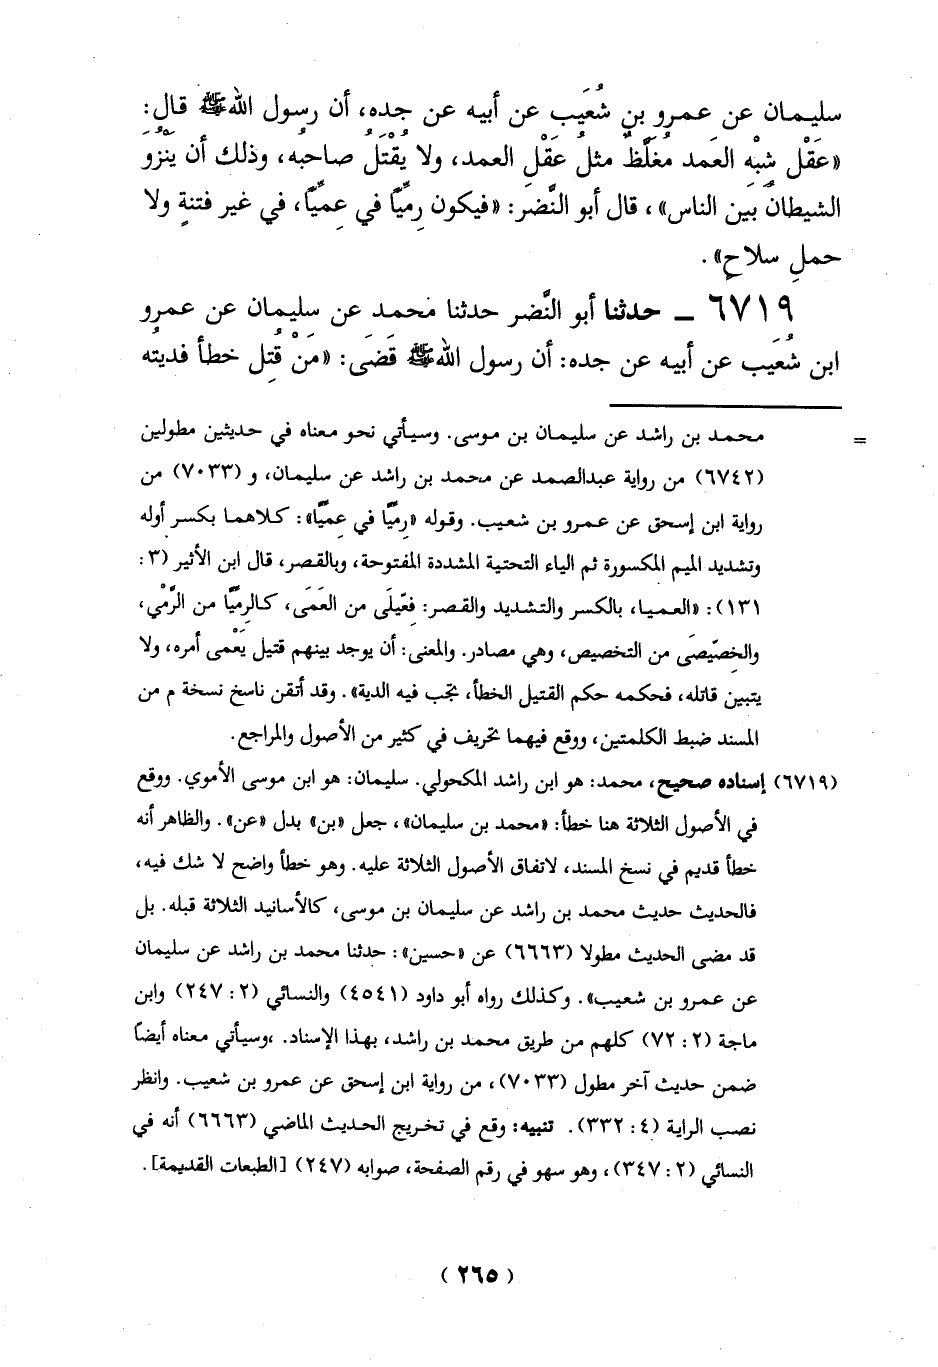 سليمان عن عمرو بن شُعَيب عن أبيه عن جده، أن رسول الله ﷺ قال:
«عَقْل شِبْه العمد مغلَّظٌ مثلُ عَقْلِ العمد، ولا يُقْتَلُ صاحبه، وذلك أن يَنْزُوَ
الشيطانُ بين الناس»، قال أبو النَّضر: «فيكون رِمِّيَّا في عِمِّيَّا، في غير فتنةٍ ولا
حملِ سلاحٍ».
٦٧١٩ ـ حدثنا أبو النَّضر حدثنا محمد عن سليمان عن عمرو
ابن شُعَيب عن أبيه عن جده: أن رسول الله ﷺ قَضَى: «مَنْ قُتل خطأ فديتُه
= محمد بن راشد عن سليمان بن موسى. وسيأتي نحو معناه في حديثين مطولين
(٦٧٤٢) من رواية عبدالصمد عن محمد بن راشد عن سليمان، و (٧٠٣٣) من
رواية ابن إسحق عن عمرو بن شعيب. وقوله «رِمِّيَّا في عِمِّيَّا»: كلاهما بكسر أوله
وتشديد الميم المكسورة ثم الياء التحتية المشددة المفتوحة، وبالقصر، قال ابن الأثير (٣:
١٣١): «العميا، بالكسر والتشديد والقصر: فعِّيلَى من العَمَى، كالرمِّيَّا من الرَّمْي،
والخِصِّيصَى من التخصيص، وهي مصادر. والمعنى: أن يوجد بينهم قتيل يَعْمى أمره، ولا
يتبين قاتله، فحكمه حكم القتيل الخطأ، تجب فيه الدية». وقد أتقن ناسخ نسخة م من
المسند ضبط الكلمتين، ووقع فيهما تحريف في كثير من الأصول والمراجع.
(٦٧١٩) إسناده صحيح، محمد: هو ابن راشد المكحولي. سليمان: هو ابن موسى الأموي. ووقع
في الأصول الثلاثة هنا خطأ: «محمد بن سليمان»، جعل «بن» بدل «عن». والظاهر أنه
خطأ قديم في نسخ المسند، لاتفاق الأصول الثلاثة عليه. وهو خطأ واضح لا شك فيه،
فالحديث حديث محمد بن راشد عن سليمان بن موسى، كالأسانيد الثلاثة قبله. بل
قد مضى الحديث مطولا (٦٦٦٣) عن «حسين»: حدثنا محمد بن راشد عن سليمان
عن عمرو بن شعيب». وكذلك رواه أبو داود (٤٥٤١) والنسائي (٢: ٢٤٧) وابن
ماجة (٢: ٧٢) كلهم من طريق محمد بن راشد، بهذا الإسناد. ،وسيأتي معناه أيضاً
ضمن حديث آخر مطول (٧٠٣٣)، من رواية ابن إسحق عن عمرو بن شعيب. وانظر
نصب الراية (٤: ٣٣٢). تنبيه: وقع في تخريج الحديث الماضي (٦٦٦٣) أنه في
النسائي (٢: ٣٤٧)، وهو سهو في رقم الصفحة، صوابه (٢٤٧) [الطبعات القديمة].
(٢٦٥)